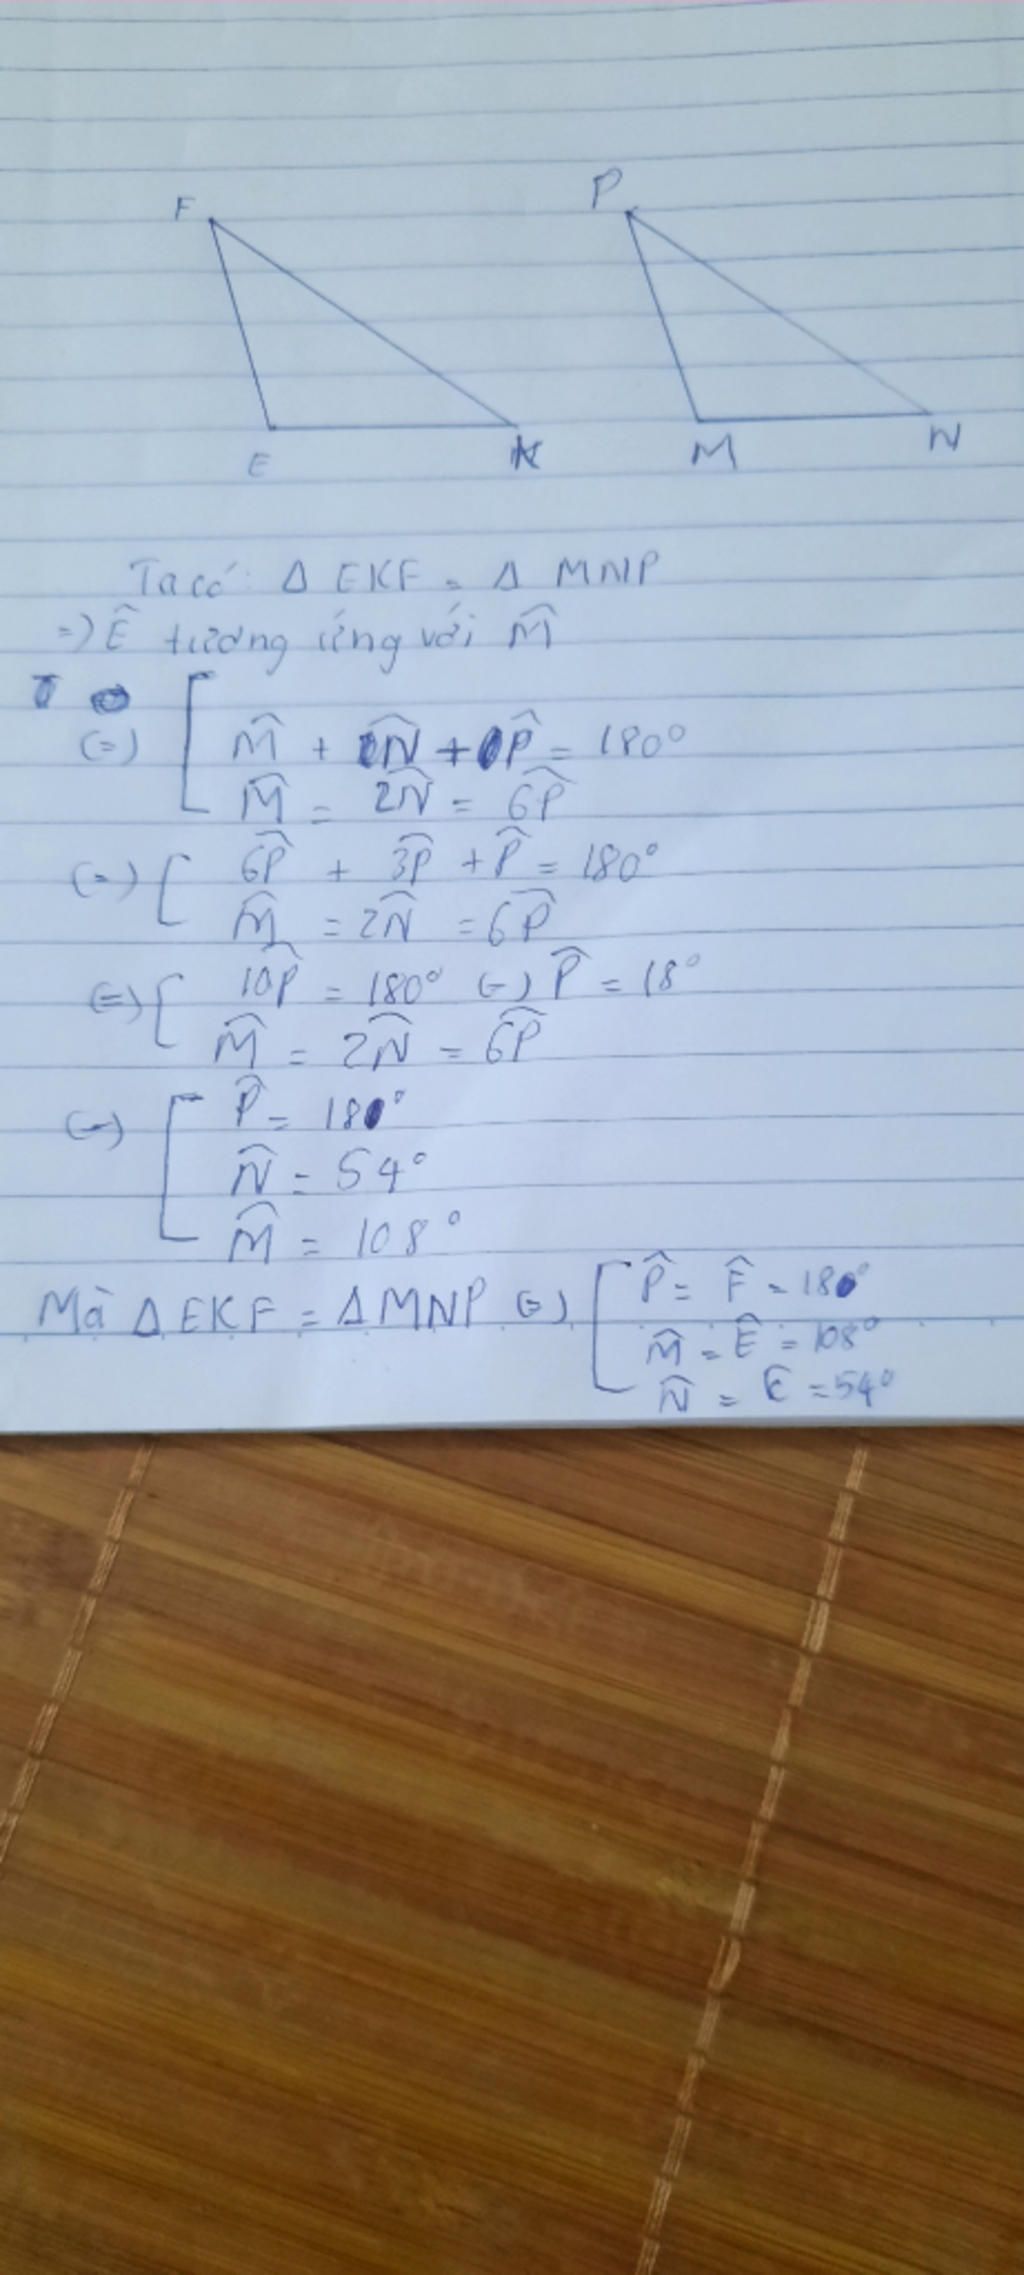 F
P
E
K
M
N
Ta có: Δ EKF = Δ MNP
=) Ê tương ứng với M̂
(=) [ M̂ + N̂ + P̂ = 180°
M̂ = 2N̂ = 6P̂
(=) [ 6P̂ + 3P̂ + P̂ = 180°
M̂ = 2N̂ = 6P̂
(=) [ 10P̂ = 180° (=) P̂ = 18°
M̂ = 2N̂ = 6P̂
(=) [ P̂ = 18°
N̂ = 54°
M̂ = 108°
Mà Δ EKF = Δ MNP (=) [ P̂ = F̂ = 18°
M̂ = Ê = 108°
N̂ = K̂ = 54°